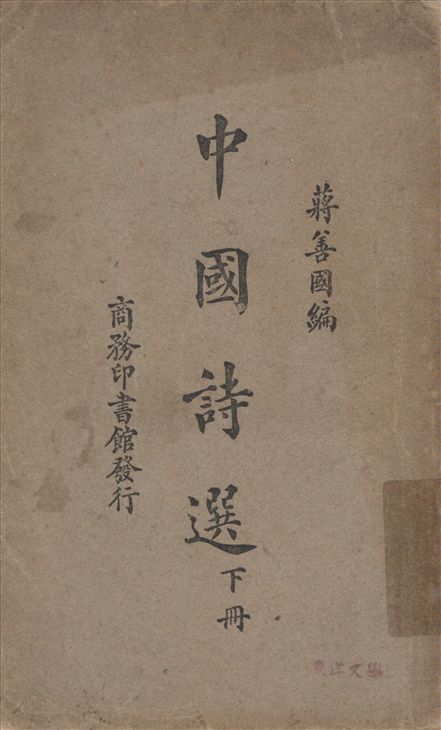 蔣善國編
中國詩選 下冊
商務印書館發行